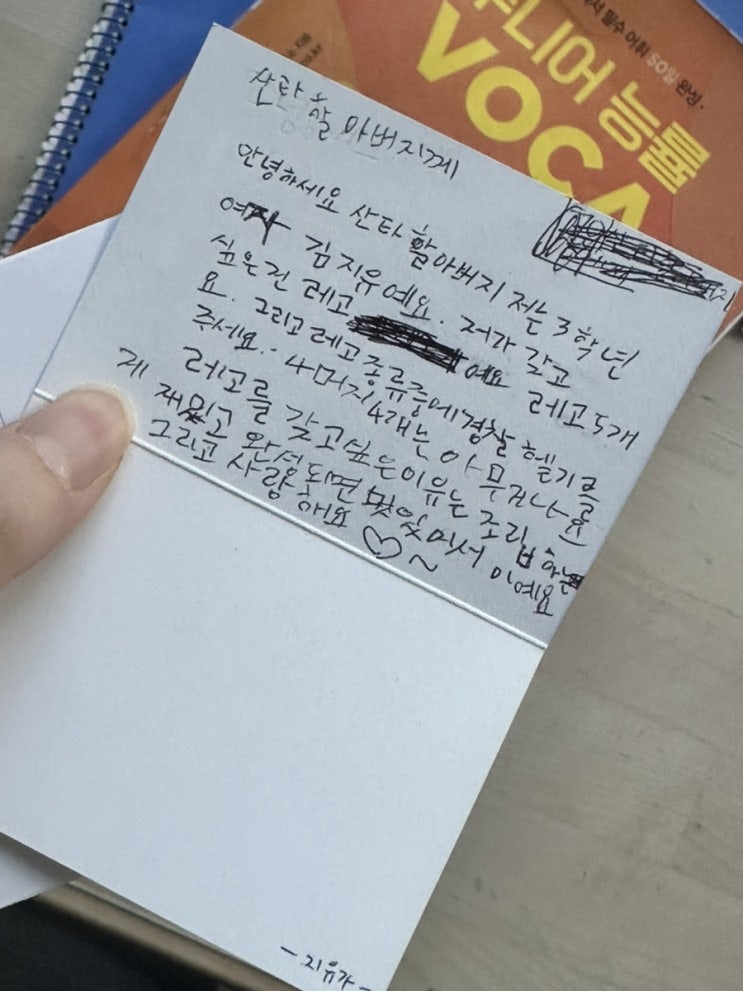 주니어 능률
VOCA
필수 어휘 50일 완성.
산타 할아버지께
안녕하세요 산타 할아버지 저는 3학년
여자 김지유예요. 저가 갖고
싶은건 레고 예요 레고 5개
요. 그리고 레고 종류중에 경찰 헬기를
주세요.. 4머지 4개는 아무거나요
레고를 갖고싶은 이유는 조립하는
게 재밌고 완성되면 멋있어서 이예요
그리고 사랑해요 ♡~
- 지유가 -